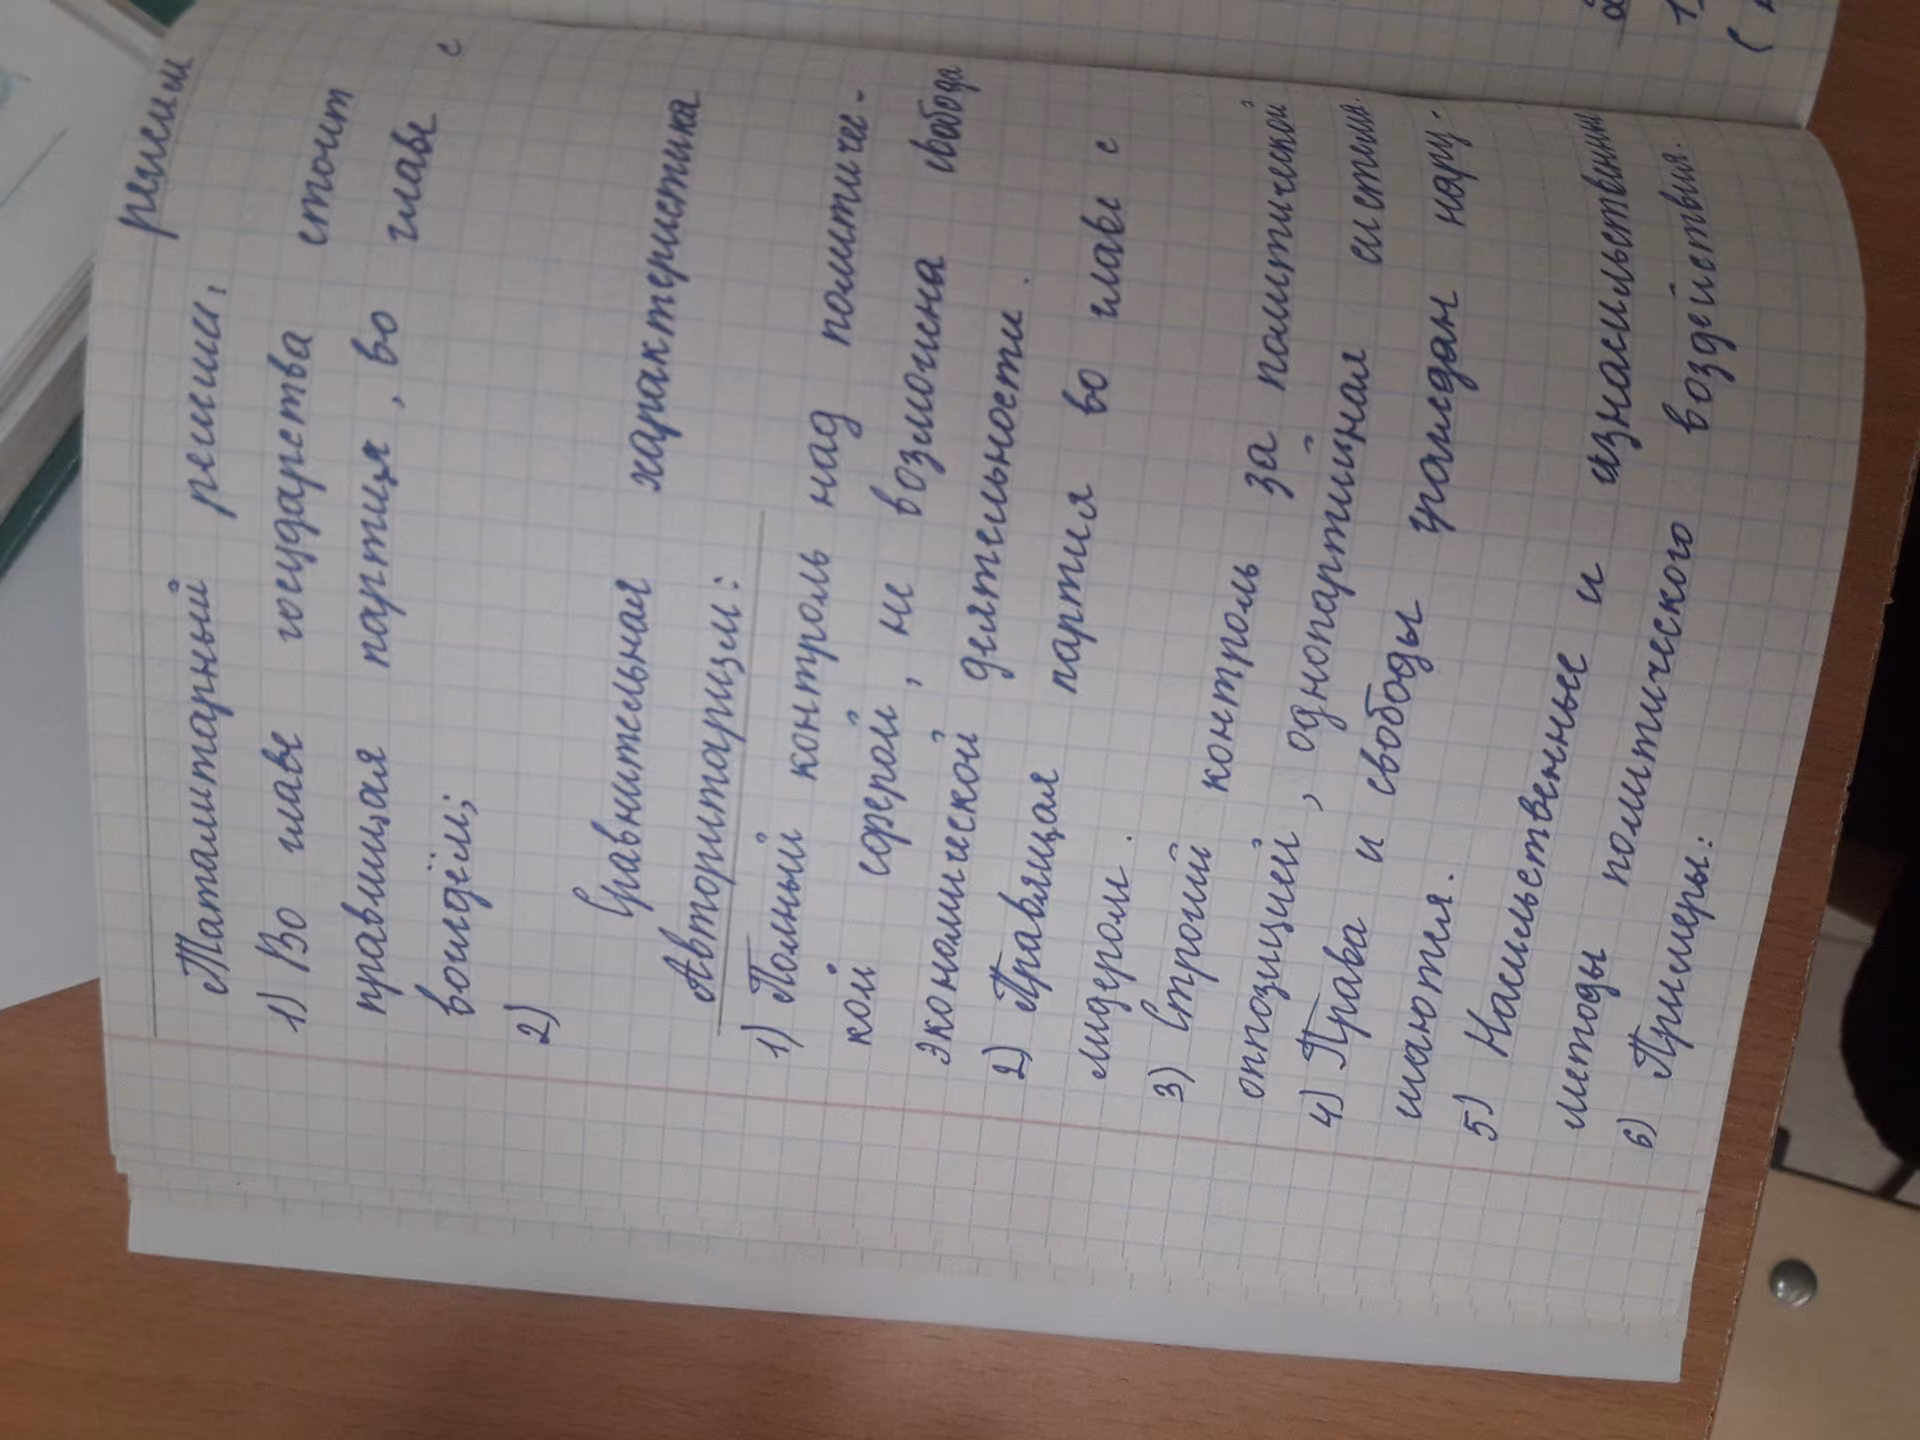 режим
Таталитарный режим:
1) Во главе государства стоит
правящая партия, во главе с
вождём;
2)
Сравнительная характеристика
Авторитаризм:
1) Полный контроль над политичес-
кой сферой, не возможна свобода
экономической деятельности.
2) Правящая партия во главе с
лидером.
3) Строгий контроль за политической
оппозицией, однопартийная система.
4) Права и свободы граждан нару-
шаются.
5) Насильственные и
методы политического воздействия.
6) Примеры: